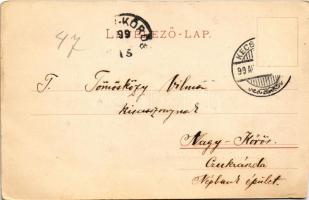 LEVELEZŐ-LAP.
-KŐRÖS
99
15
47
KECS
99
T. Tömösközy Vilma
kisasszonynak
Nagy-Kőrös.
Czukrászda
Népbank épület.